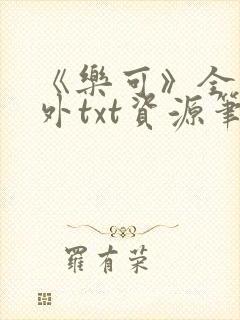 《樂可》全
外txt資源筆
羅有榮